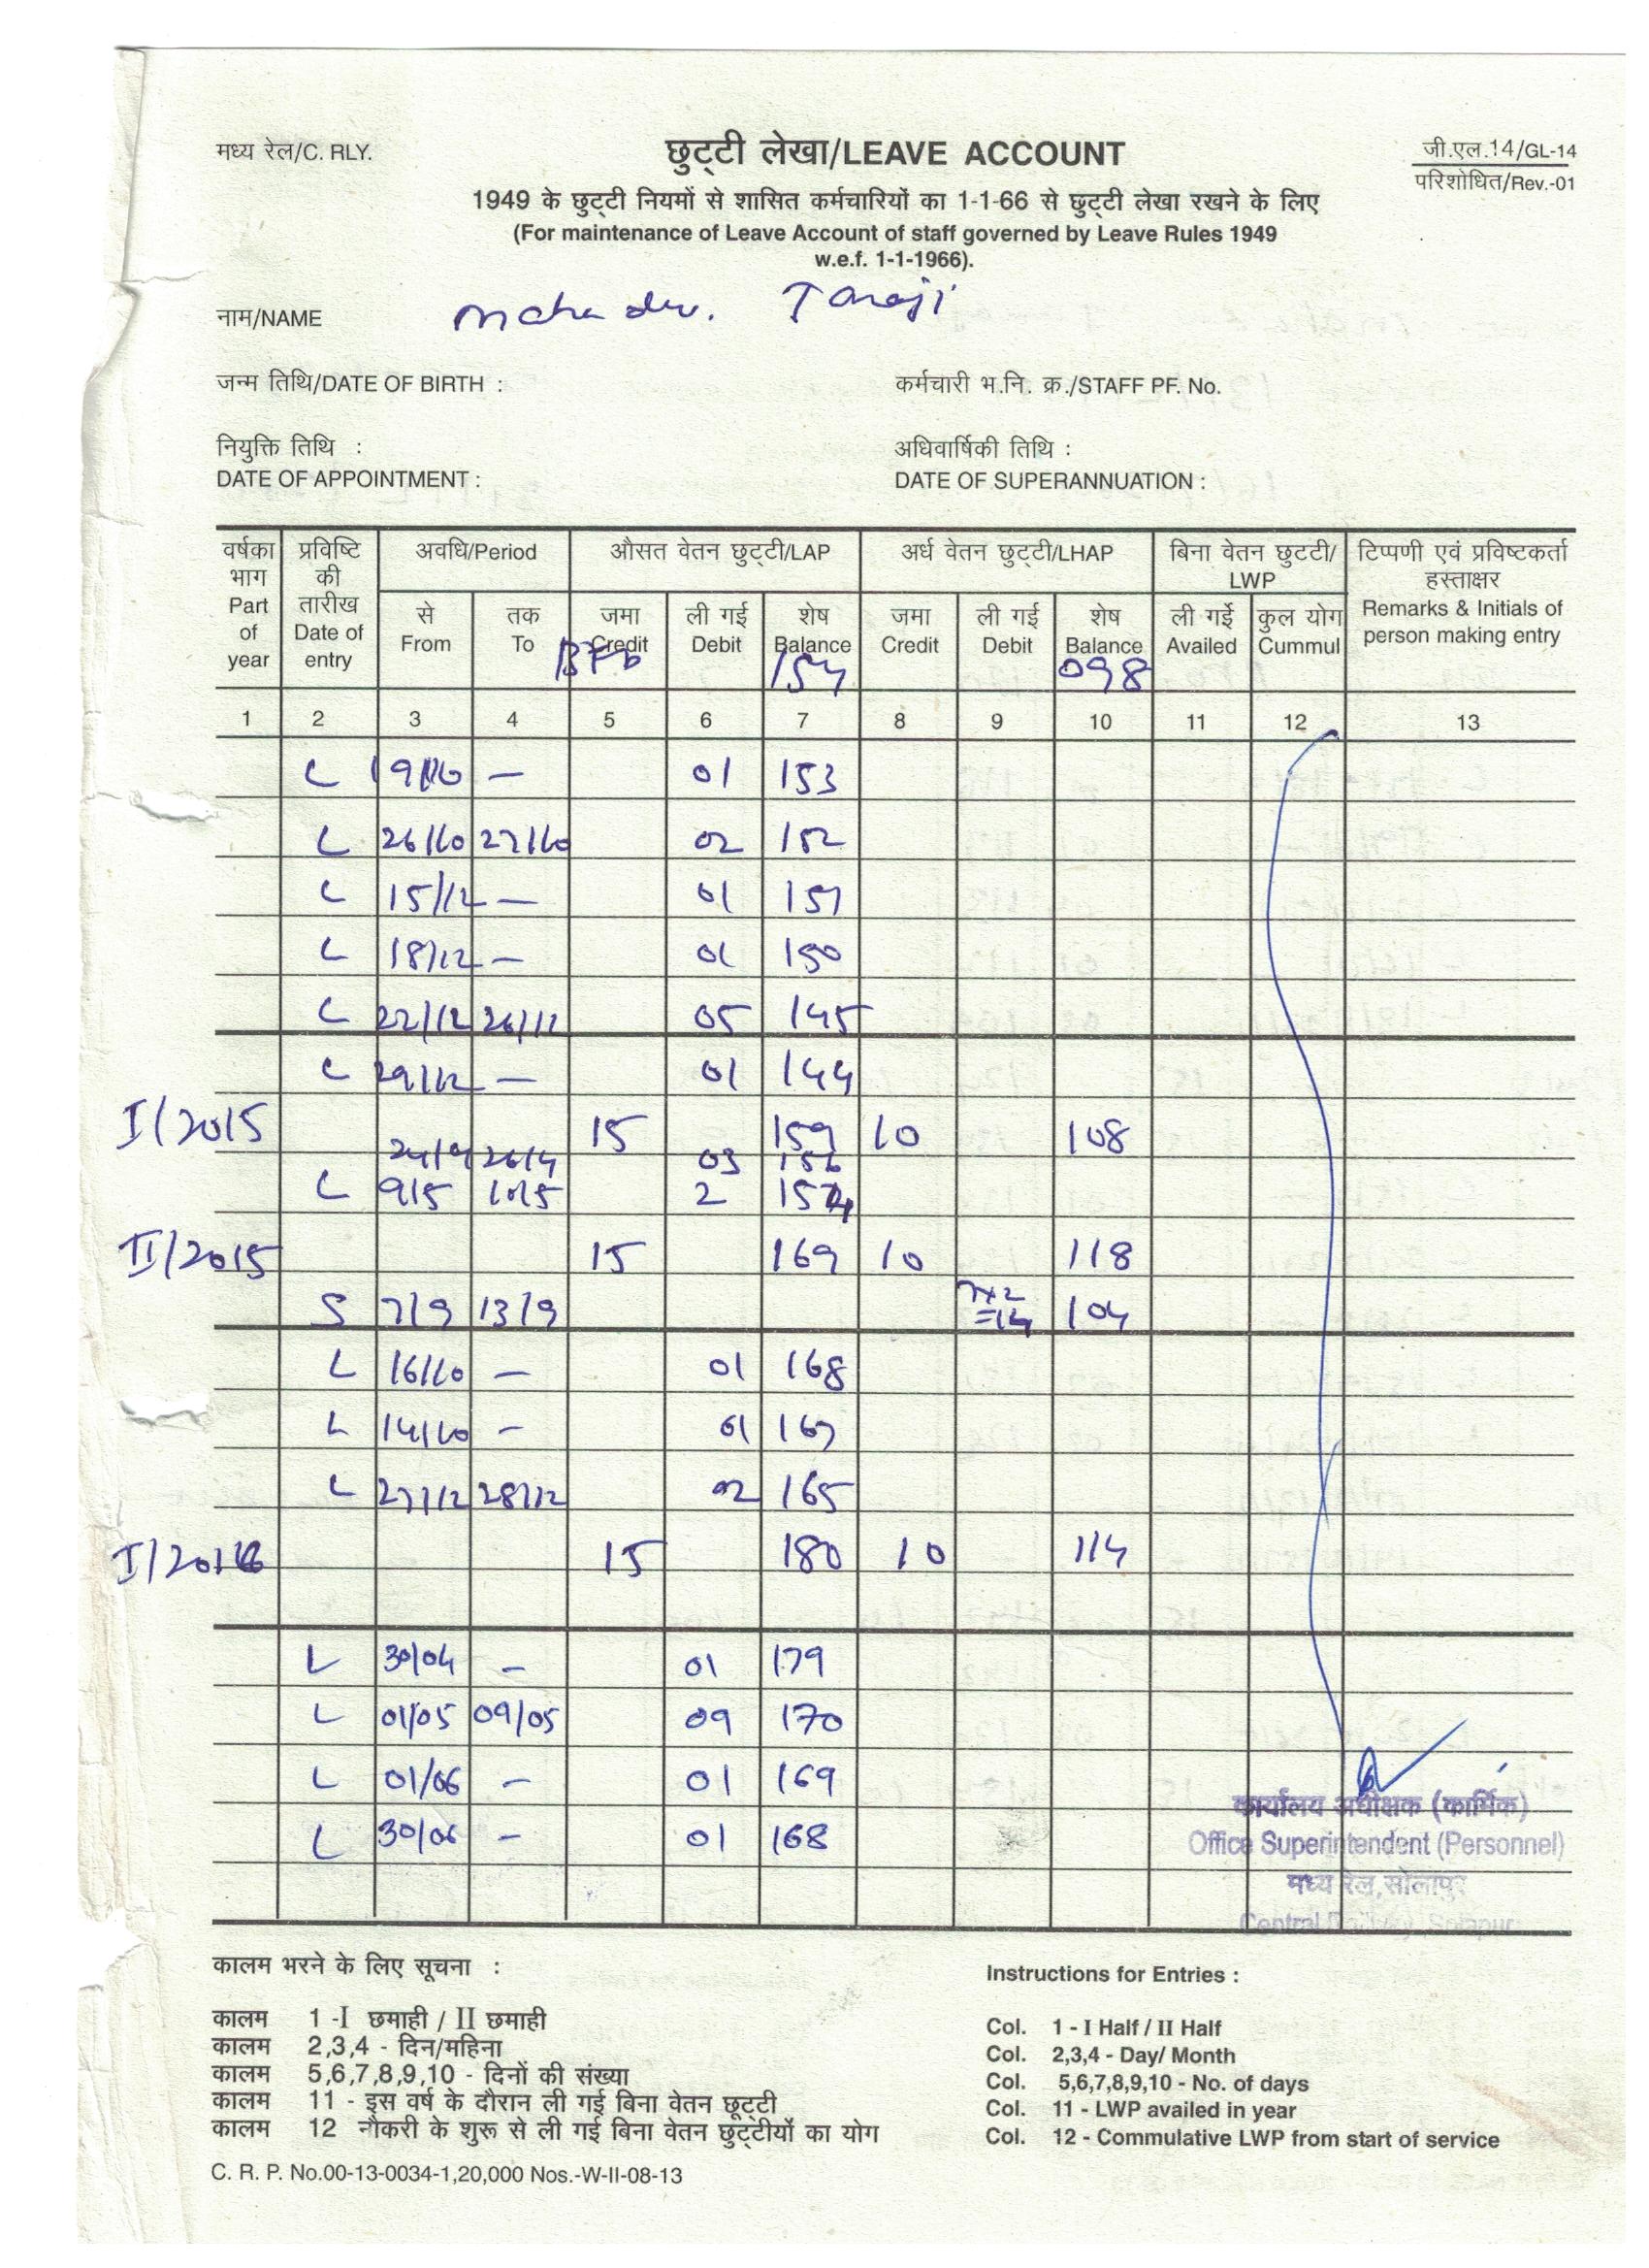 मध्य रेल/C. RLY.
छुट्टी लेखा/LEAVE ACCOUNT
जी.एल.14/GL-14
परिशोधित/Rev.-01
1949 के छुट्टी नियमों से शासित कर्मचारियों का 1-1-66 से छुट्टी लेखा रखने के लिए
(For maintenance of Leave Account of staff governed by Leave Rules 1949
w.e.f. 1-1-1966).
नाम/NAME Mahadev. Tanaji
जन्म तिथि/DATE OF BIRTH : कर्मचारी भ.नि. क्र./STAFF PF. No.
नियुक्ति तिथि : अधिवार्षिकी तिथि :
DATE OF APPOINTMENT : DATE OF SUPERANNUATION :
वर्षका भाग Part of year
प्रविष्टि की तारीख Date of entry
अवधि/Period
से From
तक To
औसत वेतन छुट्टी/LAP
जमा Credit
ली गई Debit
शेष Balance
अर्ध वेतन छुट्टी/LHAP
जमा Credit
ली गई Debit
शेष Balance
बिना वेतन छुटटी/ LWP
ली गईे Availed
कुल योग Cummul
टिप्पणी एवं प्रविष्टकर्ता हस्ताक्षर
Remarks & Initials of person making entry
154 098
1 2 3 4 5 6 7 8 9 10 11 12 13
L 19/10 — 01 153
L 26/10 27/10 02 152
L 15/12 — 01 151
L 18/12 — 01 150
L 22/12 26/12 05 145
L 29/12 — 01 144
I/2015 15 159 10 108
24/4 26/4 03 156
L 9/5 10/5 2 154
II/2015 15 169 10 118
S 7/9 13/9 7x2 =14 104
L 16/10 — 01 168
L 14/10 — 01 167
L 27/12 28/12 02 165
I/2016 15 180 10 114
L 30/04 — 01 179
L 01/05 09/05 09 170
L 01/06 — 01 169
L 30/06 — 01 168
कार्यालय अधीक्षक (कार्मिक)
Office Superintendent (Personnel)
मध्य रेल, सोलापुर
Central Railway, Solapur
कालम भरने के लिए सूचना :
कालम 1 -I छमाही / II छमाही
कालम 2,3,4 - दिन/महिना
कालम 5,6,7,8,9,10 - दिनों की संख्या
कालम 11 - इस वर्ष के दौरान ली गई बिना वेतन छूट्टी
कालम 12 नौकरी के शुरू से ली गई बिना वेतन छुट्टीयों का योग
Instructions for Entries :
Col. 1 - I Half / II Half
Col. 2,3,4 - Day/ Month
Col. 5,6,7,8,9,10 - No. of days
Col. 11 - LWP availed in year
Col. 12 - Commulative LWP from start of service
C. R. P. No.00-13-0034-1,20,000 Nos.-W-II-08-13